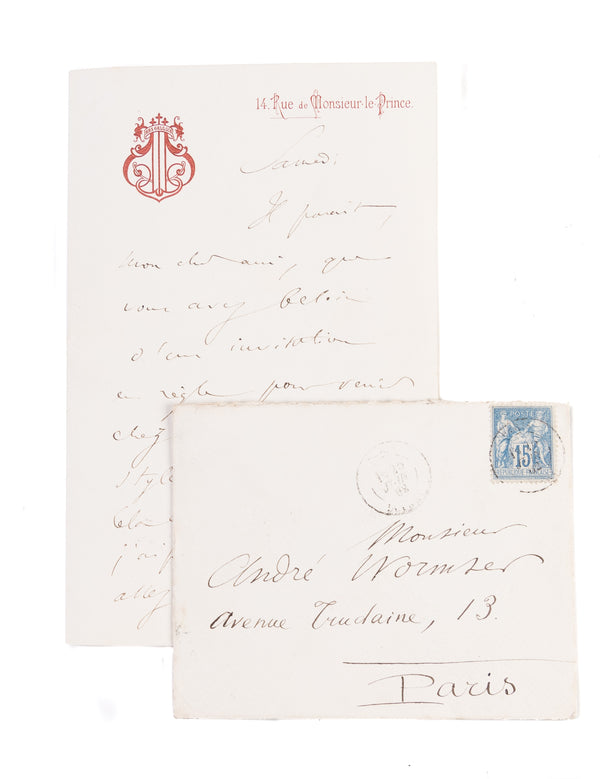 14. Rue de Monsieur-le-Prince.
Samedi
Il parait,
mon cher ami, que
vous avez besoin
d'une invitation
en règle pour venir
chez
style
j'ai
allez
POSTE
15
Monsieur
André Wormser
avenue Trudaine, 13.
Paris